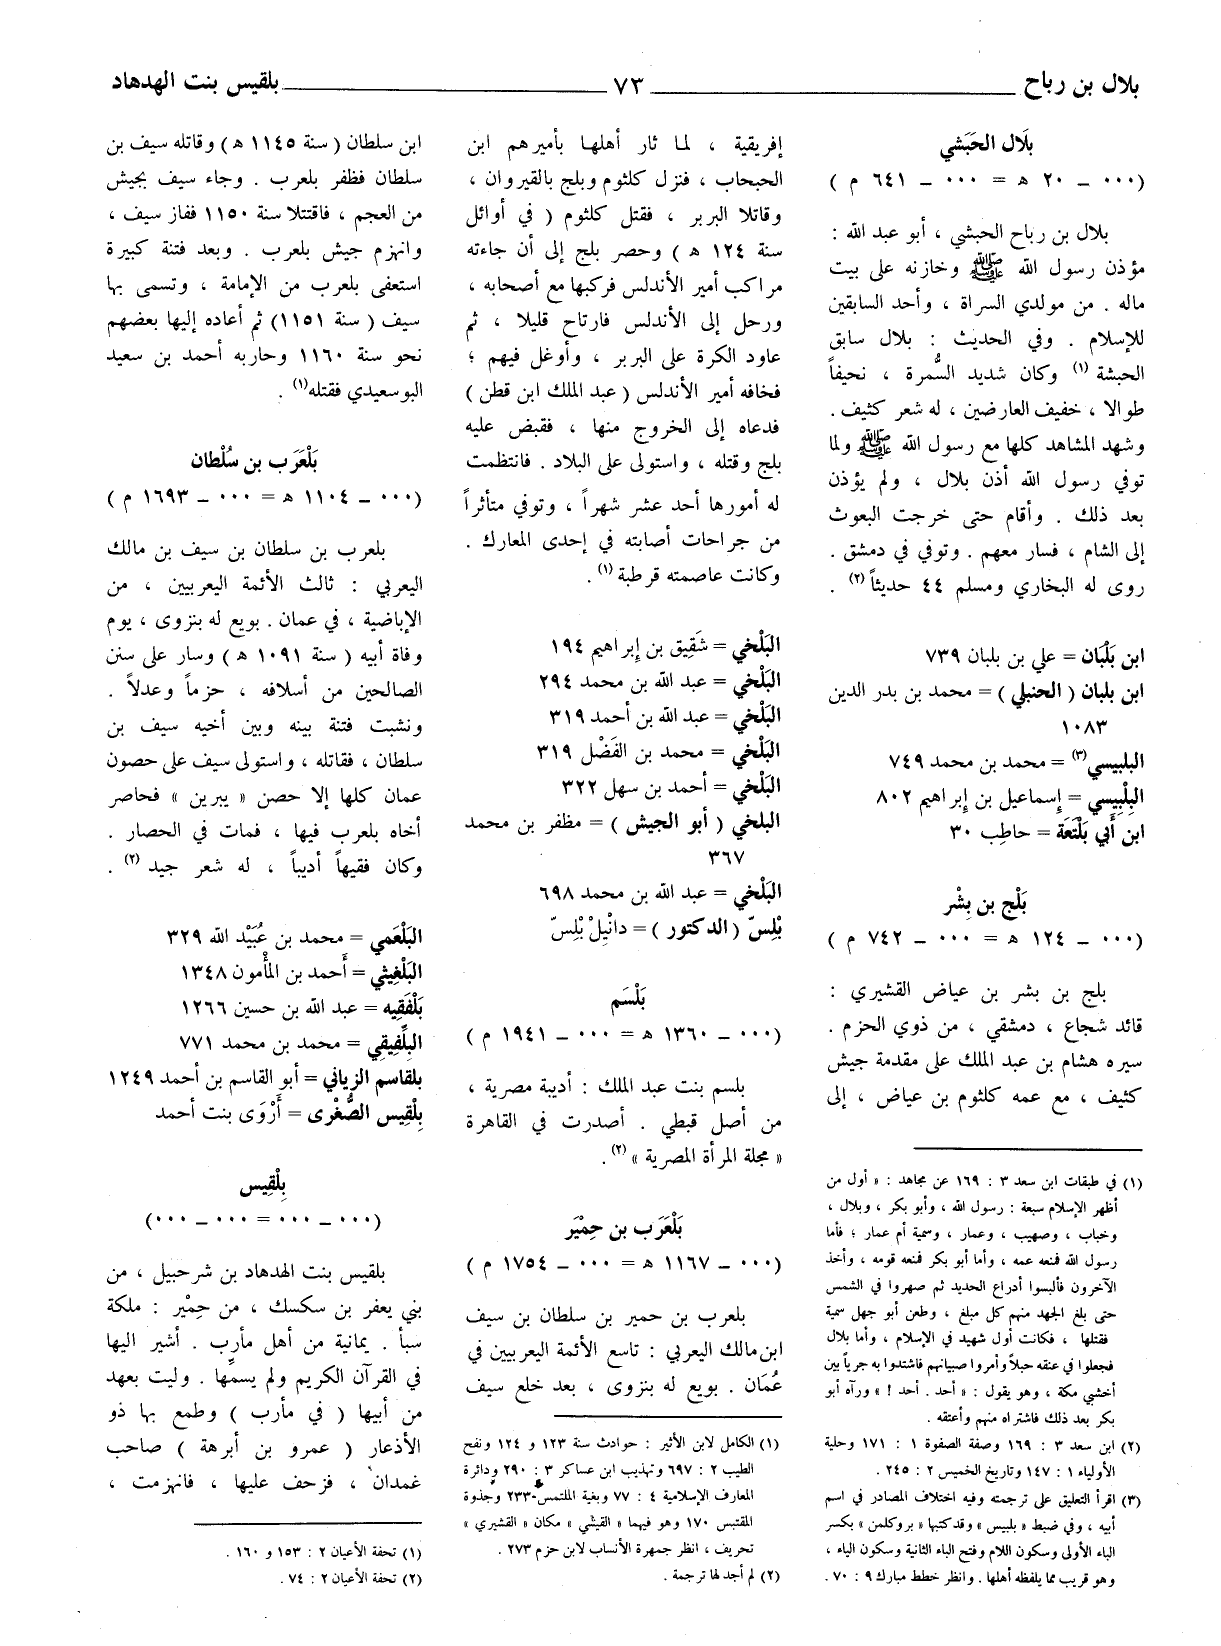 بلال بن رباح ٧٣ بلقيس بنت الهدهاد
بلَال الحَبَشي
(٠٠٠ ــ ٢٠ ه = ٠٠٠ ــ ٦٤١ م )
بلال بن رباح الحبشي ، أبو عبد الله :
مؤذن رسول الله ﷺ وخازنه على بيت
ماله . من مولدي السراة ، وأحد السابقين
للإسلام . وفي الحديث : بلال سابق
الحبشة (١) وكان شديد السُّمرة ، نحيفاً
طوالا ، خفيف العارضين ، له شعر كثيف .
وشهد المشاهد كلها مع رسول الله ﷺ ولما
توفي رسول الله أذن بلال ، ولم يؤذن
بعد ذلك . وأقام حتى خرجت البعوث
إلى الشام ، فسار معهم . وتوفي في دمشق .
روى له البخاري ومسلم ٤٤ حديثاً (٢) .
ابن بَلْبَان = علي بن بلبان ٧٣٩
ابن بلبان ( الحنبلي ) = محمد بن بدر الدين
١٠٨٣
البلبيسي (٣) = محمد بن محمد ٧٤٩
البِلْبِيسي = إسماعيل بن إبراهيم ٨٠٢
ابن أَبي بَلْتَعَة = حاطِب ٣٠
بَلْج بن بِشْر
(٠٠٠ ــ ١٢٤ ه = ٠٠٠ ــ ٧٤٢ م )
بلج بن بشر بن عياض القشيري :
قائد شجاع ، دمشقي ، من ذوي الحزم .
سيره هشام بن عبد الملك على مقدمة جيش
كثيف ، مع عمه كلثوم بن عياض ، إلى
(١) في طبقات ابن سعد ٣ : ١٦٩ عن مجاهد : « أول من
أظهر الإسلام سبعة : رسول الله ، وأبو بكر ، وبلال ،
وخباب ، وصهيب ، وعمار ، وسمية أم عمار ؛ فأما
رسول الله فمنعه عمه ، وأما أبو بكر فمنعه قومه ، وأخذ
الآخرون فألبسوا أدراع الحديد ثم صهروا في الشمس
حتى بلغ الجهد منهم كل مبلغ ، وطعن أبو جهل سمية
فقتلها ، فكانت أول شهيد في الإسلام ، وأما بلال
فجعلوا في عنقه حبلاً وأمروا صبيانهم فاشتدوا به جرياً بين
أخشبي مكة ، وهو يقول : « أحد . أحد ! » ورآه أبو
بكر بعد ذلك فاشتراه منهم وأعتقه .
(٢) ابن سعد ٣ : ١٦٩ وصفة الصفوة ١ : ١٧١ وحلية
الأولياء ١ : ١٤٧ وتاريخ الخميس ٢ : ٢٤٥ .
(٣) اقرأ التعليق على ترجمته وفيه اختلاف المصادر في اسم
أبيه ، وفي ضبط « بلبيس » وقد كتبها « بروكلمن » بكسر
الباء الأولى وسكون اللام وفتح الباء الثانية وسكون الياء ،
وهو قريب مما يلفظه أهلها . وانظر خطط مبارك ٩ : ٧٠ .
إفريقية ، لما ثار أهلها بأميرهم ابن
الحبحاب ، فنزل كلثوم وبلج بالقيروان ،
وقاتلا البربر ، فقتل كلثوم ( في أوائل
سنة ١٢٤ ه ) وحصر بلج إلى أن جاءته
مراكب أمير الأندلس فركبها مع أصحابه ،
ورحل إلى الأندلس فارتاح قليلا ، ثم
عاود الكرة على البربر ، وأوغل فيهم ؛
فخافه أمير الأندلس ( عبد الملك ابن قطن )
فدعاه إلى الخروج منها ، فقبض عليه
بلج وقتله ، واستولى على البلاد . فانتظمت
له أمورها أحد عشر شهراً ، وتوفي متأثراً
من جراحات أصابته في إحدى المعارك .
وكانت عاصمته قرطبة (١) .
البَلْخي = شَقِيق بن إبراهيم ١٩٤
البَلْخي = عبد الله بن محمد ٢٩٤
البَلْخي = عبد الله بن أحمد ٣١٩
البَلْخي = محمد بن الفَضْل ٣١٩
البَلْخي = أحمد بن سهل ٣٢٢
البلخي ( أبو الجيش ) = مظفر بن محمد
٣٦٧
البَلْخي = عبد الله بن محمد ٦٩٨
بْلِسّ ( الدكتور ) = دانْيِلْ بْلِسّ
بَلْسَم
(٠٠٠ ــ ١٣٦٠ ه = ٠٠٠ ــ ١٩٤١ م )
بلسم بنت عبد الملك : أديبة مصرية ،
من أصل قبطي . أصدرت في القاهرة
« مجلة المرأة المصرية » (٢) .
بَلْعَرَب بن حِمْيَر
(٠٠٠ ــ ١١٦٧ ه = ٠٠٠ ــ ١٧٥٤ م )
بلعرب بن حمير بن سلطان بن سيف
ابن مالك اليعربي : تاسع الأئمة اليعربيين في
عُمَان . بويع له بنزوى ، بعد خلع سيف
(١) الكامل لابن الأثير : حوادث سنة ١٢٣ و ١٢٤ ونفح
الطيب ٢ : ٦٩٧ وتهذيب ابن عساكر ٣ : ٢٩٠ ودائرة
المعارف الإسلامية ٤ : ٧٧ وبغية الملتمس ٢٣٣ وجذوة
المقتبس ١٧٠ وهو فيهما « القيشي » مكان « القشيري »
تحريف ، انظر جمهرة الأنساب لابن حزم ٢٧٣ .
(٢) لم أجد لها ترجمة .
ابن سلطان ( سنة ١١٤٥ ه ) وقاتله سيف بن
سلطان فظفر بلعرب . وجاء سيف بجيش
من العجم ، فاقتتلا سنة ١١٥٠ ففاز سيف ،
وانهزم جيش بلعرب . وبعد فتنة كبيرة
استعفى بلعرب من الإمامة ، وتسمى بها
سيف ( سنة ١١٥١ ) ثم أعاده إليها بعضهم
نحو سنة ١١٦٠ وحاربه أحمد بن سعيد
البوسعيدي فقتله (١) .
بَلْعَرَب بن سُلْطان
(٠٠٠ ــ ١١٠٤ ه = ٠٠٠ ــ ١٦٩٣ م )
بلعرب بن سلطان بن سيف بن مالك
اليعربي : ثالث الأئمة اليعربيين ، من
الإباضية ، في عمان . بويع له بنزوى ، يوم
وفاة أبيه ( سنة ١٠٩١ ه ) وسار على سنن
الصالحين من أسلافه ، حزماً وعدلاً .
ونشبت فتنة بينه وبين أخيه سيف بن
سلطان ، فقاتله ، واستولى سيف على حصون
عمان كلها إلا حصن « يبرين » فحاصر
أخاه بلعرب فيها ، فمات في الحصار .
وكان فقيهاً أديباً ، له شعر جيد (٢) .
البَلْعَمي = محمد بن عُبَيْد الله ٣٢٩
البَلْغِيثي = أَحمد بن المأْمون ١٣٤٨
بَلْفَقِيه = عبد الله بن حسين ١٢٦٦
البِلَّفِيقِي = محمد بن محمد ٧٧١
بلقاسم الزياني = أبو القاسم بن أحمد ١٢٤٩
بِلْقِيس الصُّغْرى = أَرْوَى بنت أحمد
بِلْقِيس
(٠٠٠ ــ ٠٠٠ = ٠٠٠ ــ ٠٠٠)
بلقيس بنت الهدهاد بن شرحبيل ، من
بني يعفر بن سكسك ، من حِمْير : ملكة
سبأ . يمانية من أهل مأرب . أشير اليها
في القرآن الكريم ولم يسمِّها . وليت بعهد
من أبيها ( في مأرب ) وطمع بها ذو
الأذعار ( عمرو بن أبرهة ) صاحب
غمدان ، فزحف عليها ، فانهزمت ،
(١) تحفة الأعيان ٢ : ١٥٣ و ١٦٠ .
(٢) تحفة الأعيان ٢ : ٧٤ .